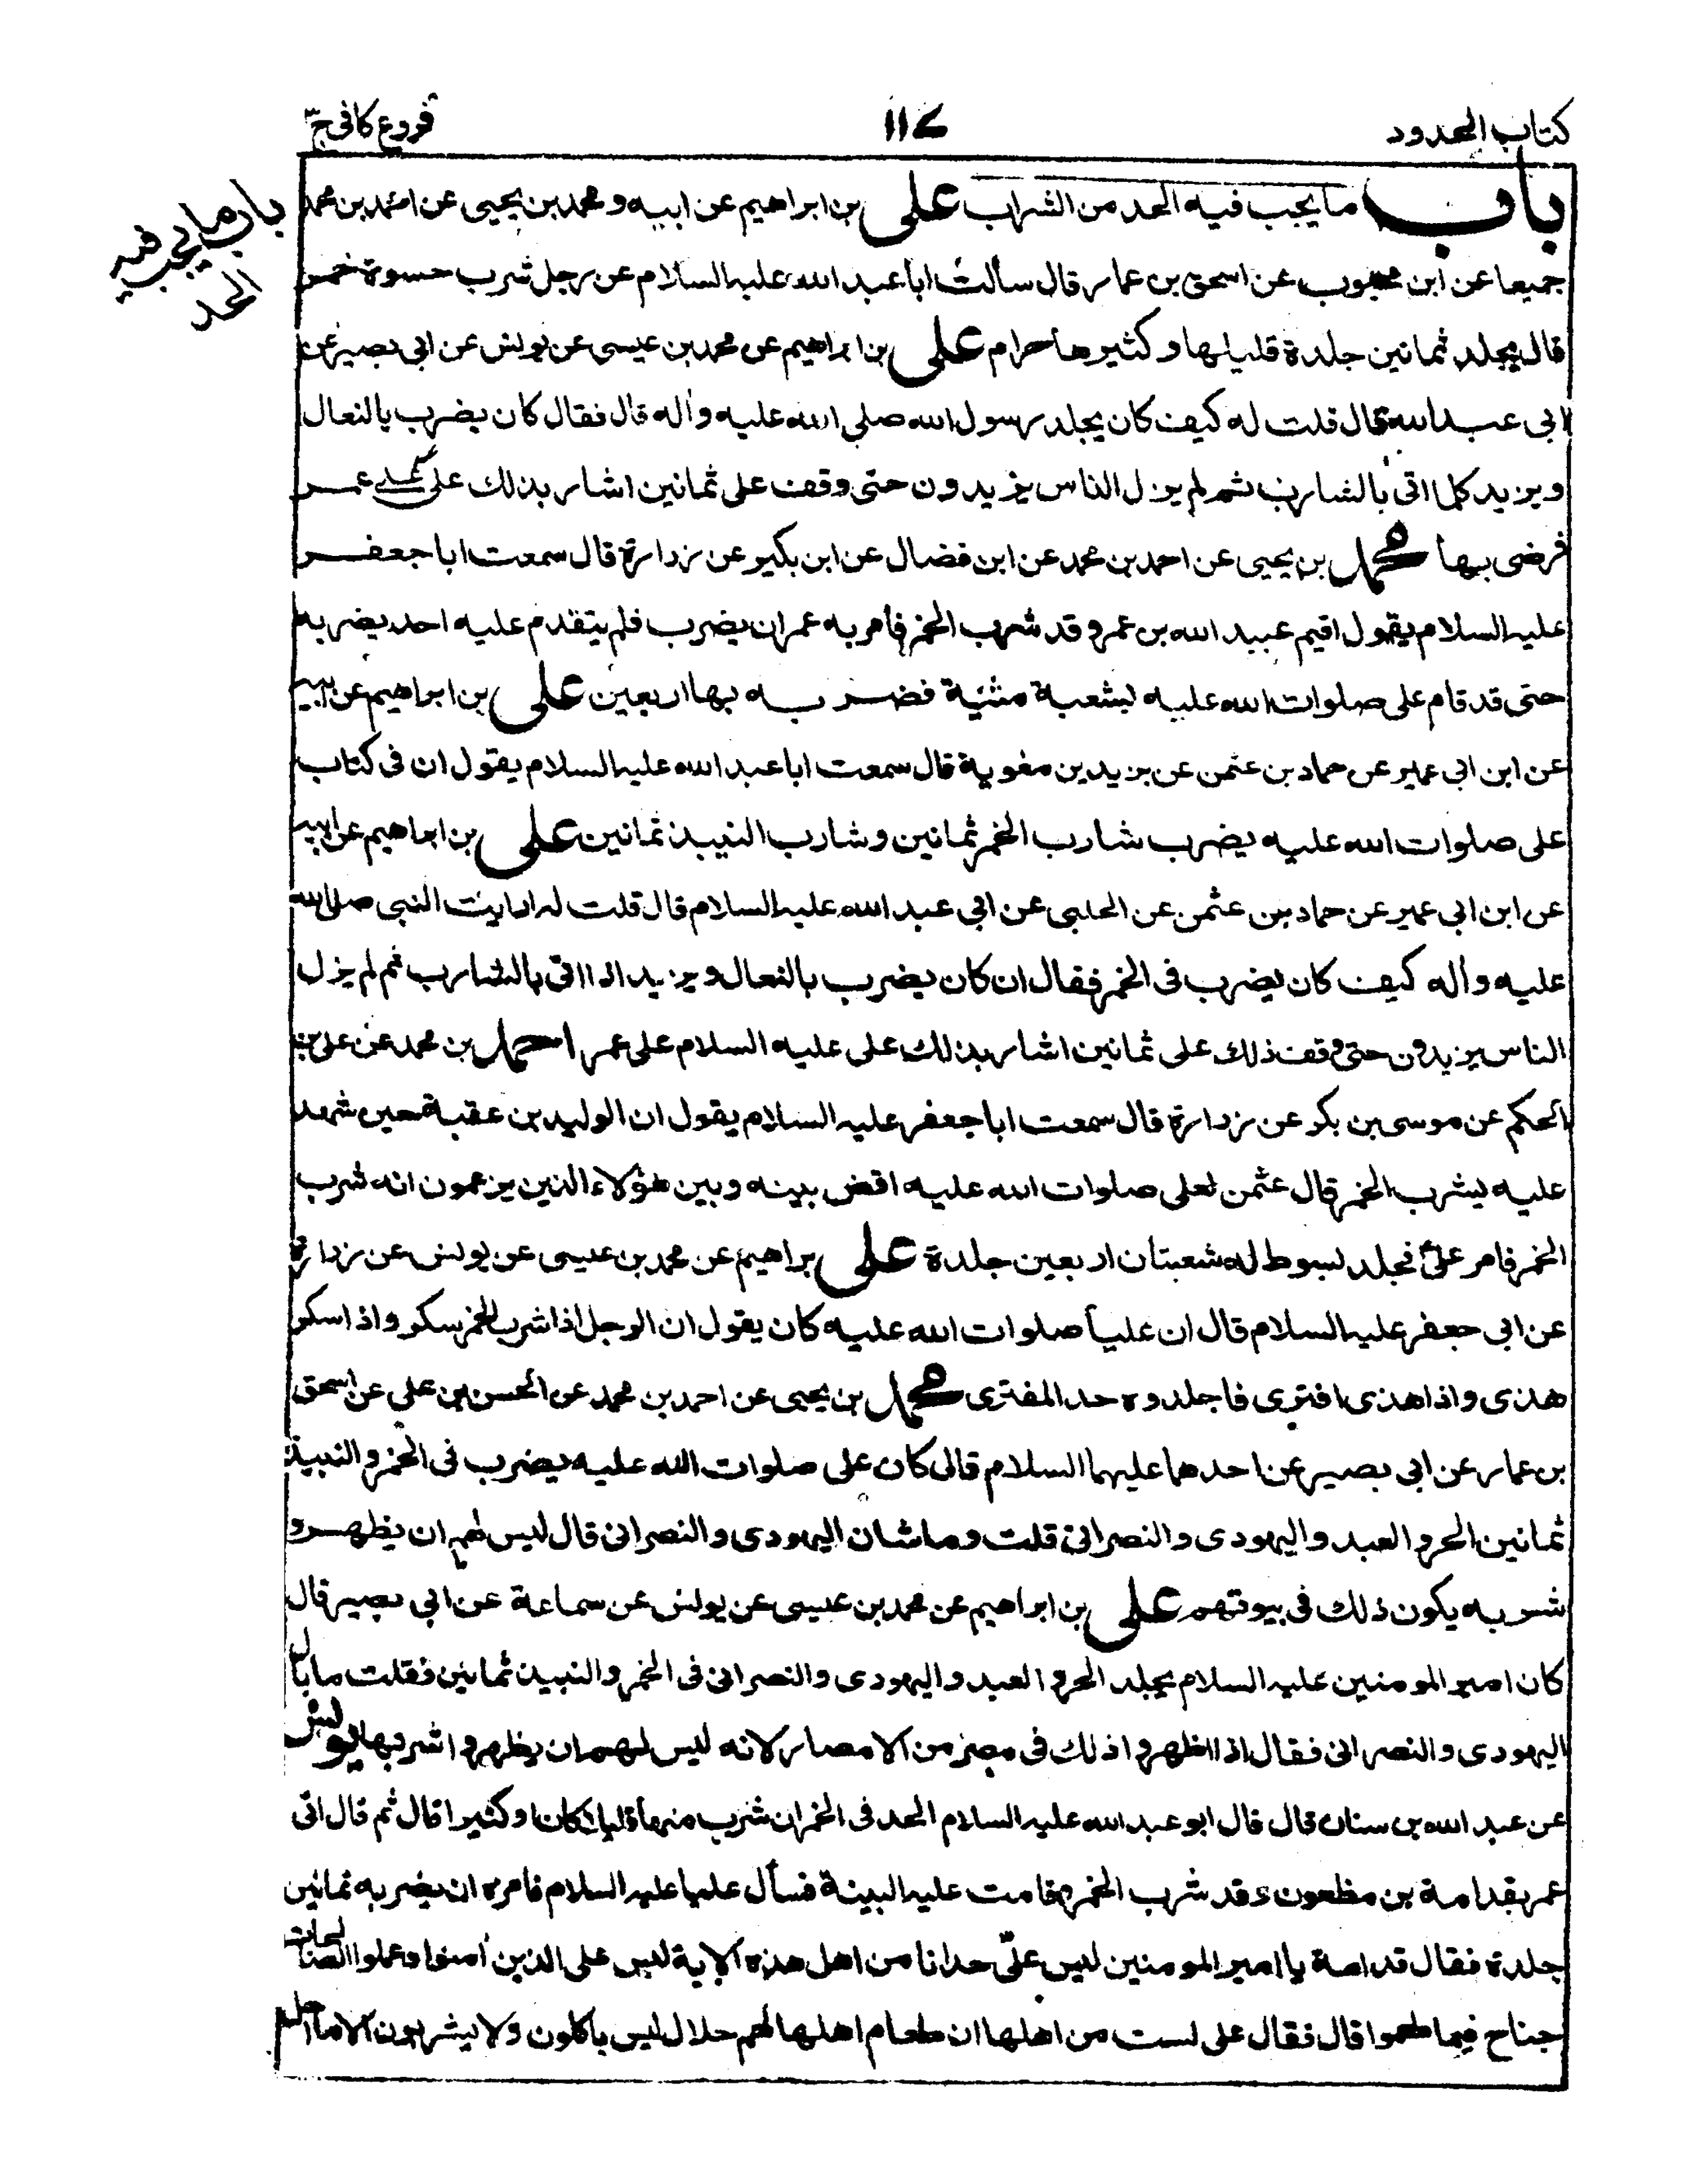 كتاب الحدود
١١٧
فروع كافى ج٣
باب ما يجب فيه الحد
باب ما يجب فيه الحد من الشراب على بن ابراهيم عن ابيه ومحمد بن يحيى عن احمد بن محمد
جميعا عن ابن محبوب عن اسحق بن عمار قال سالت ابا عبد الله عليه السلام عن رجل شرب حسوة خمر
قال يجلد ثمانين جلدة قليلها وكثيرها حرام على بن ابراهيم عن محمد بن عيسى عن يونس عن ابى بصير عن
ابى عبد الله قال قلت له كيف كان يجلد رسول الله صلى الله عليه واله قال فقال كان يضرب بالنعال
ويزيد كلما اتى بالشارب ثم لم يزل الناس يزيدون حتى وقف على ثمانين اشار بذلك على على عمر
فرضى بها محمد بن يحيى عن احمد بن محمد عن ابن فضال عن ابن بكير عن زرارة قال سمعت ابا جعفر
عليه السلام يقول اقيم عبيد الله بن عمر و قد شرب الخمر فامر به عمران يضرب فلم يتقدم عليه احد يضربه
حتى قد قام على صلوات الله عليه بشعبة مثنية فضربه بها اربعين على بن ابراهيم عن ابيه
عن ابن ابى عمير عن حماد بن عثمن عن بريد بن معوية قال سمعت ابا عبد الله عليه السلام يقول ان فى كتاب
على صلوات الله عليه يضرب شارب الخمر ثمانين وشارب النبيذ ثمانين على بن ابراهيم عن ابيه
عن ابن ابى عمير عن حماد بن عثمن عن الحلبى عن ابى عبد الله عليه السلام قال قلت له ارايت النبى صلى الله
عليه واله كيف كان يضرب فى الخمر فقال ان كان يضرب بالنعال ويزيد اذا اتى بالشارب ثم لم يزل
الناس يزيدون حتى وقف ذلك على ثمانين اشار بذلك على عليه السلام على عمر احمد بن محمد عن على بن
الحكم عن موسى بن بكر عن زرارة قال سمعت ابا جعفر عليه السلام يقول ان الوليد بن عقبة حين شهد
عليه بشرب الخمر قال عثمن لعلى صلوات الله عليه اقض بينه وبين هؤلاء الذين يزعمون انه شرب
الخمر فامر على فجلد بسوط له شعبتان اربعين جلدة على براهيم عن محمد بن عيسى عن يونس عن زرارة
عن ابى جعفر عليه السلام قال ان عليا صلوات الله عليه كان يقول ان الرجل اذا شرب الخمر سكر واذا سكر
هذى واذا هذى افترى فاجلدوه حد المفترى محمد بن يحيى عن احمد بن محمد عن الحسن بن على عن اسحق
بن عمار عن ابى بصير عن احدهما عليهما السلام قال كان على صلوات الله عليه يضرب فى الخمر والنبيذ
ثمانين الحر والعبد واليهودى والنصرانى قلت وماشان اليهودى والنصرانى قال ليس لهم ان يظهروا
شربه يكون ذلك فى بيوتهم على بن ابراهيم عن محمد بن عيسى عن يونس عن سماعة عن ابى بصير قال
كان امير المومنين عليه السلام يجلد الحر والعبد واليهودى والنصرانى فى الخمر والنبيذ ثمانين فقلت ما بال
اليهودى والنصرانى فقال اذا اظهروا ذلك فى مصر من الامصار لانه ليس لهم ان يظهروا شربها يونس
عن عبد الله بن سنان قال قال ابو عبد الله عليه السلام الحد فى الخمر ان شرب منها قليلا كان او كثيرا قال ثم قال اتى
عمر بقدامة بن مظعون وقد شرب الخمر وقامت عليه البينة فسأل عليا عليه السلام فامره ان يضربه ثمانين
جلدة فقال قدامة يا امير المومنين ليس علىّ حد انا من اهل هذه الاية ليس على الذين امنوا وعملوا الصالحات
جناح فيما طعموا قال فقال على لست من اهلها ان طعام اهلها لهم حلال ليس ياكلون ولا يشربون الا ما احل